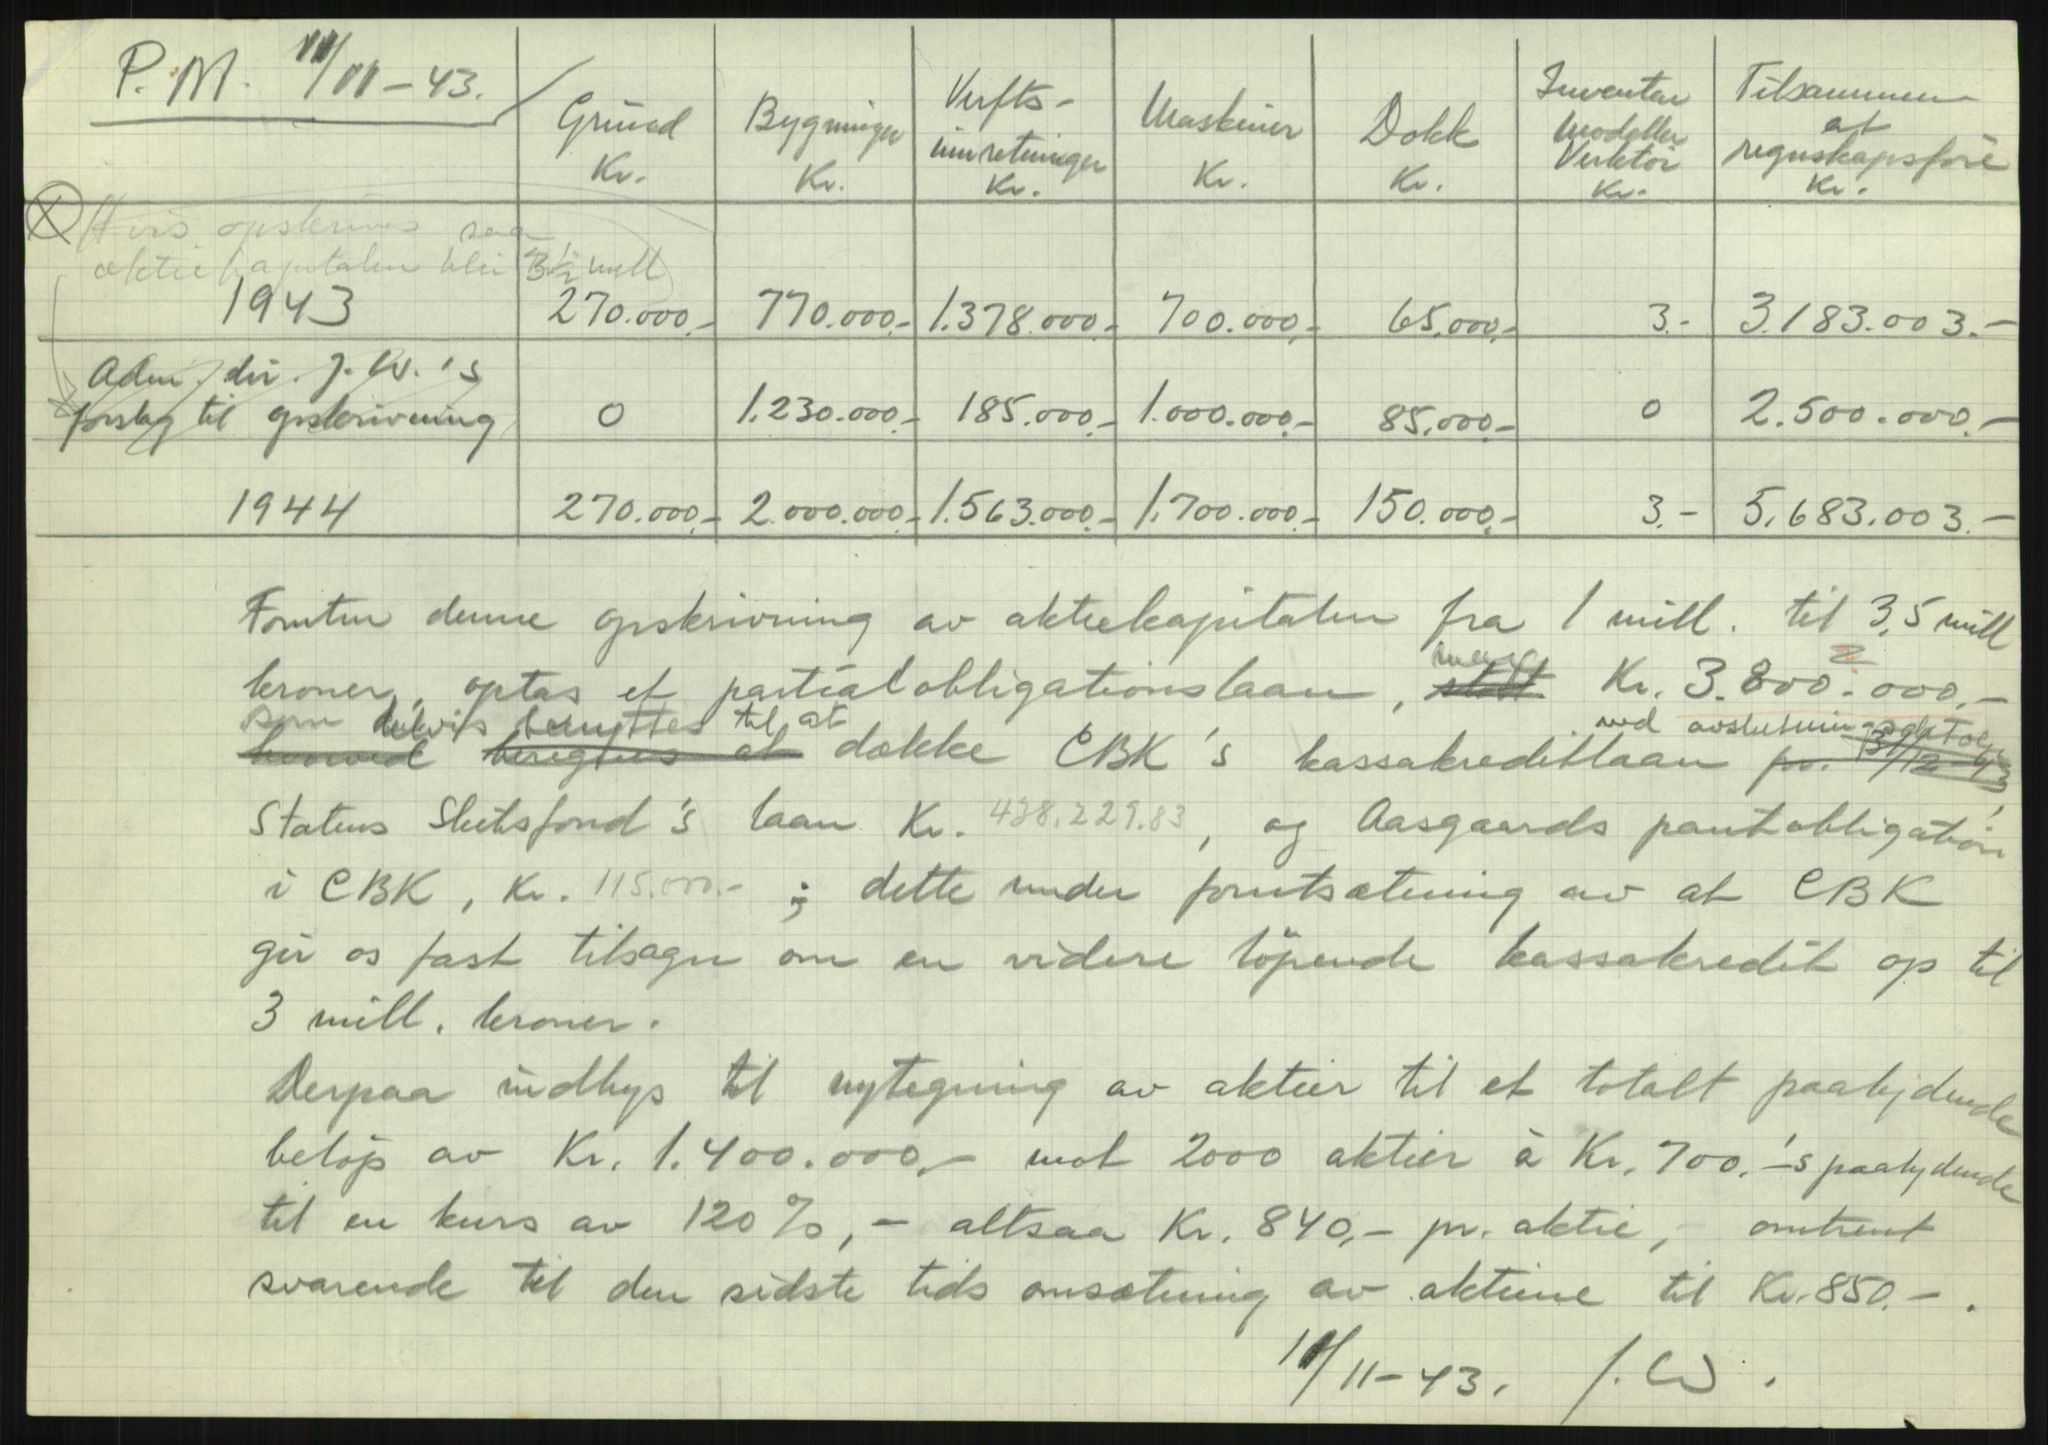 P.M. 11/11-43.
Grund Kr. | Bygninger Kr. | Verfts-innretninger Kr. | Maskiner Kr. | Dokk Kr. | Inventar Modeller Verktöi Kr. | Tilsammen at regnskapsföre Kr.
Hvis opskrives saa
aktiekapitalen blir 3½ mill
1943 270.000,- 770.000,- 1.378.000,- 700.000,- 65.000,- 3.- 3.183.003.-
Adm. dir. J.W.'s
forslag til opskrivning 0 1.230.000,- 185.000,- 1.000.000,- 85.000,- 0 2.500.000,-
1944 270.000,- 2.000.000,- 1.563.000,- 1.700.000,- 150.000,- 3.- 5.683.003.-
Foruten denne opskrivning av aktiekapitalen fra 1 mill. til 3,5 mill
kroner, optas et partialobligationslaan, stort Kr. 3.800.000,-
som delvis benyttes til at ved avslutning
hvorved dække CBK's kassakreditlaan pr. 31/12-43
Statens Slitsfond's laan Kr. 428.229.83, og Aasgaards pantobligation
i CBK, Kr. 115.000.- ; dette under forutsætning av at CBK
gir os fast tilsagn om en videre löpende kassakredit op til
3 mill. kroner.
Derpaa indbys til nytegning av aktier til et totalt paalydende
belöp av Kr. 1.400.000,- mot 2000 aktier à Kr. 700.-'s paalydende
til en kurs av 120%,- altsaa Kr. 840,- pr. aktie, omtrent
svarende til den sidste tids omsætning av aktiene til Kr. 850.- .
11/11-43. J.W.